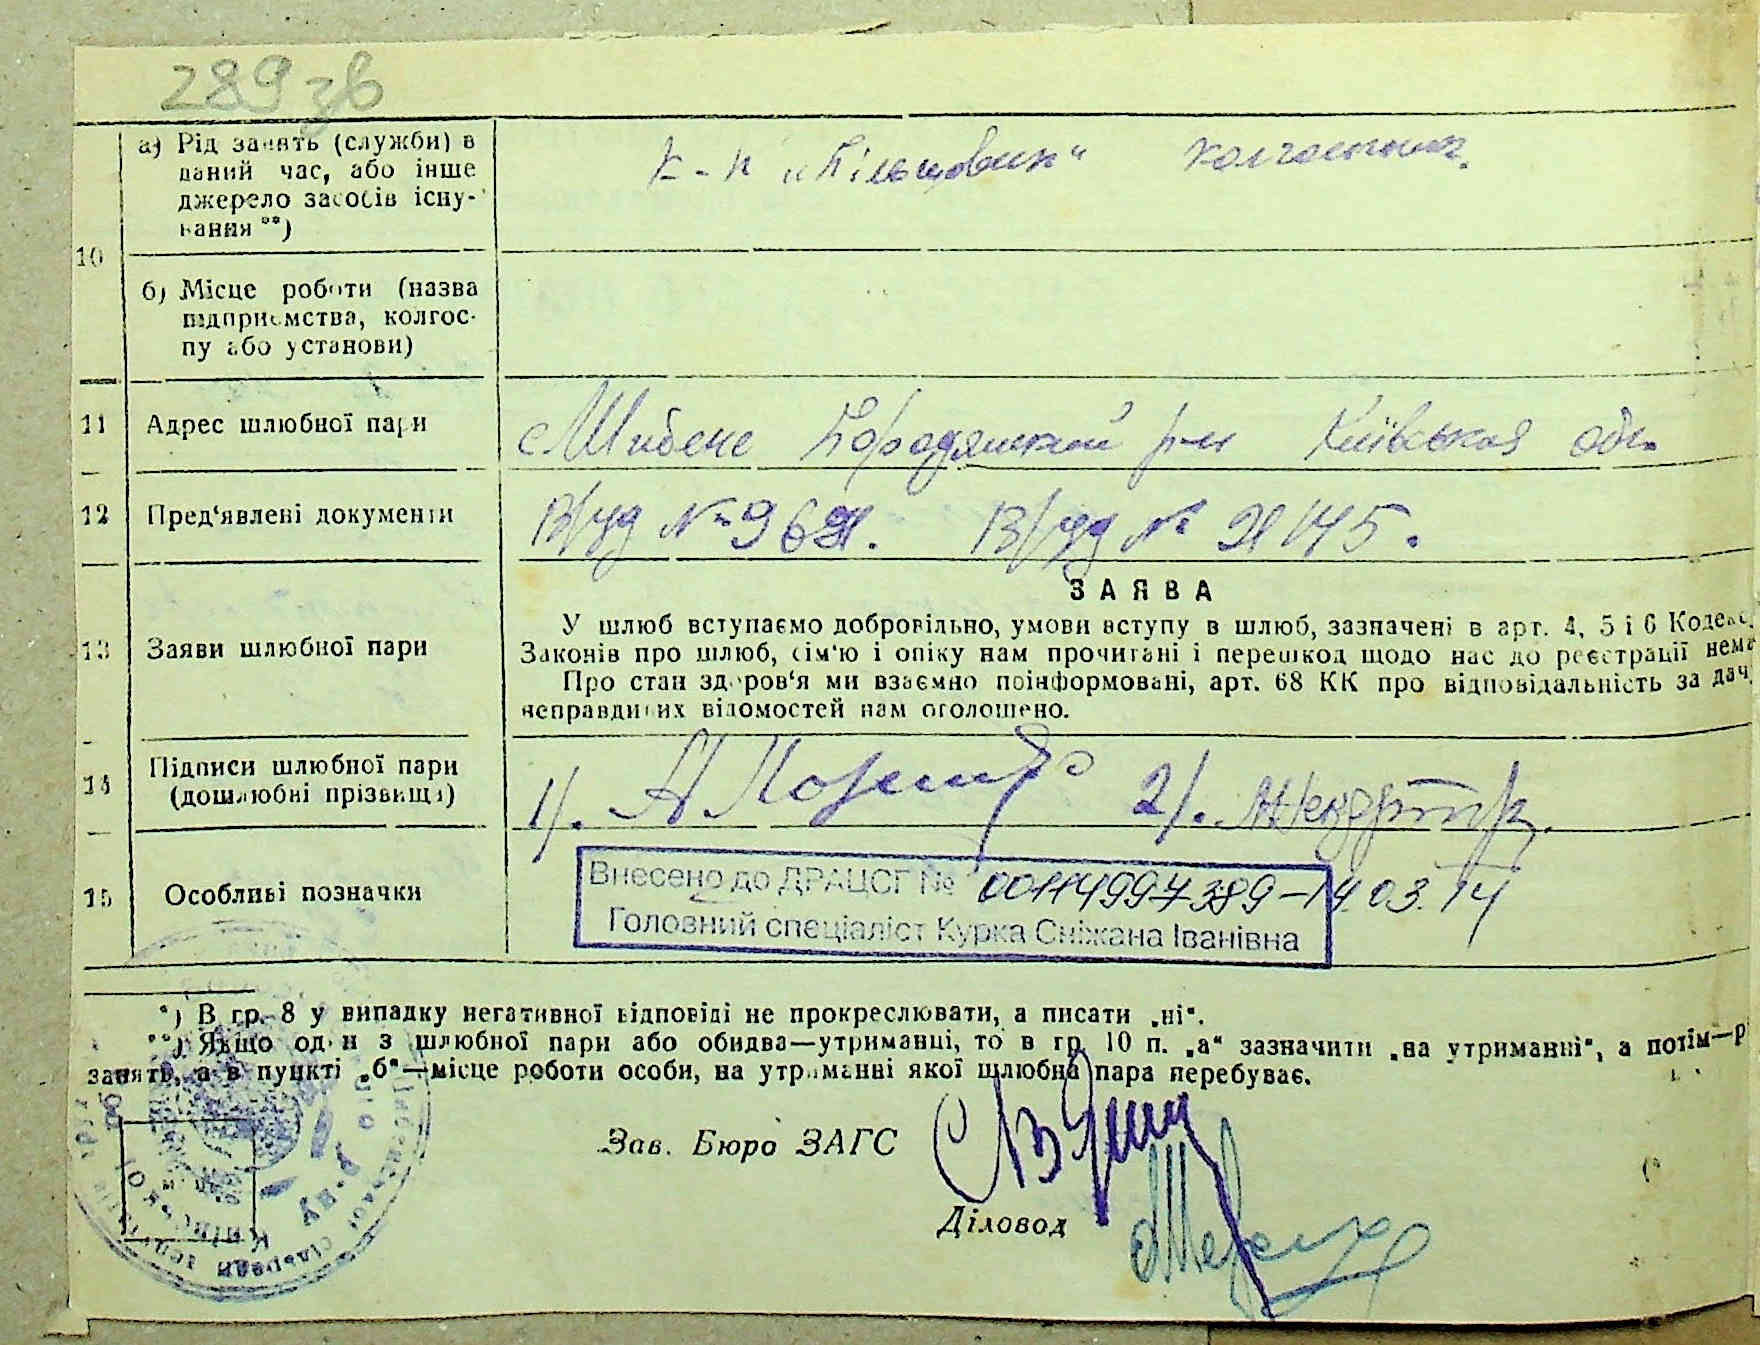 289 зв
а) Рід занять (служби) в
даний час, або інше
джерело засобів існу-
вання **)
к-п „Більшовик“ колгоспник.
10
б) Місце роботи (назва
підприємства, колгос-
пу або установи)
11 Адрес шлюбної пари
с Шибене Бородянский р-н Київськая обл.
12 Пред‘явлені документи
В/уд № В/уд №
ЗАЯВА
13 Заяви шлюбної пари
У шлюб вступаємо добровільно, умови вступу в шлюб, зазначені в арт. 4, 5 і 6 Кодексу
Законів про шлюб, сім‘ю і опіку нам прочитані і перешкод щодо нас до реєстрації нема
Про стан здоров‘я ми взаємно поінформовані, арт. 68 КК про відповідальність за дач
неправдивих відомостей нам оголошено.
14 Підписи шлюбної пари
(дошлюбні прізвища)
1). 2).
15 Особливі позначки
Внесено до ДРАЦСГ № 00114997389-14.03.14
Головний спеціаліст Курка Сніжана Іванівна
*) В гр. 8 у випадку негативної відповіді не прокреслювати, а писати „ні“.
**) Якщо один з шлюбної пари або обидва—утриманці, то в гр. 10 п. „а“ зазначити „на утриманні“, а потім—р
занять, а в пункті „б“—місце роботи особи, на утриманні якої шлюбна пара перебуває.
Зав. Бюро ЗАГС
Діловод